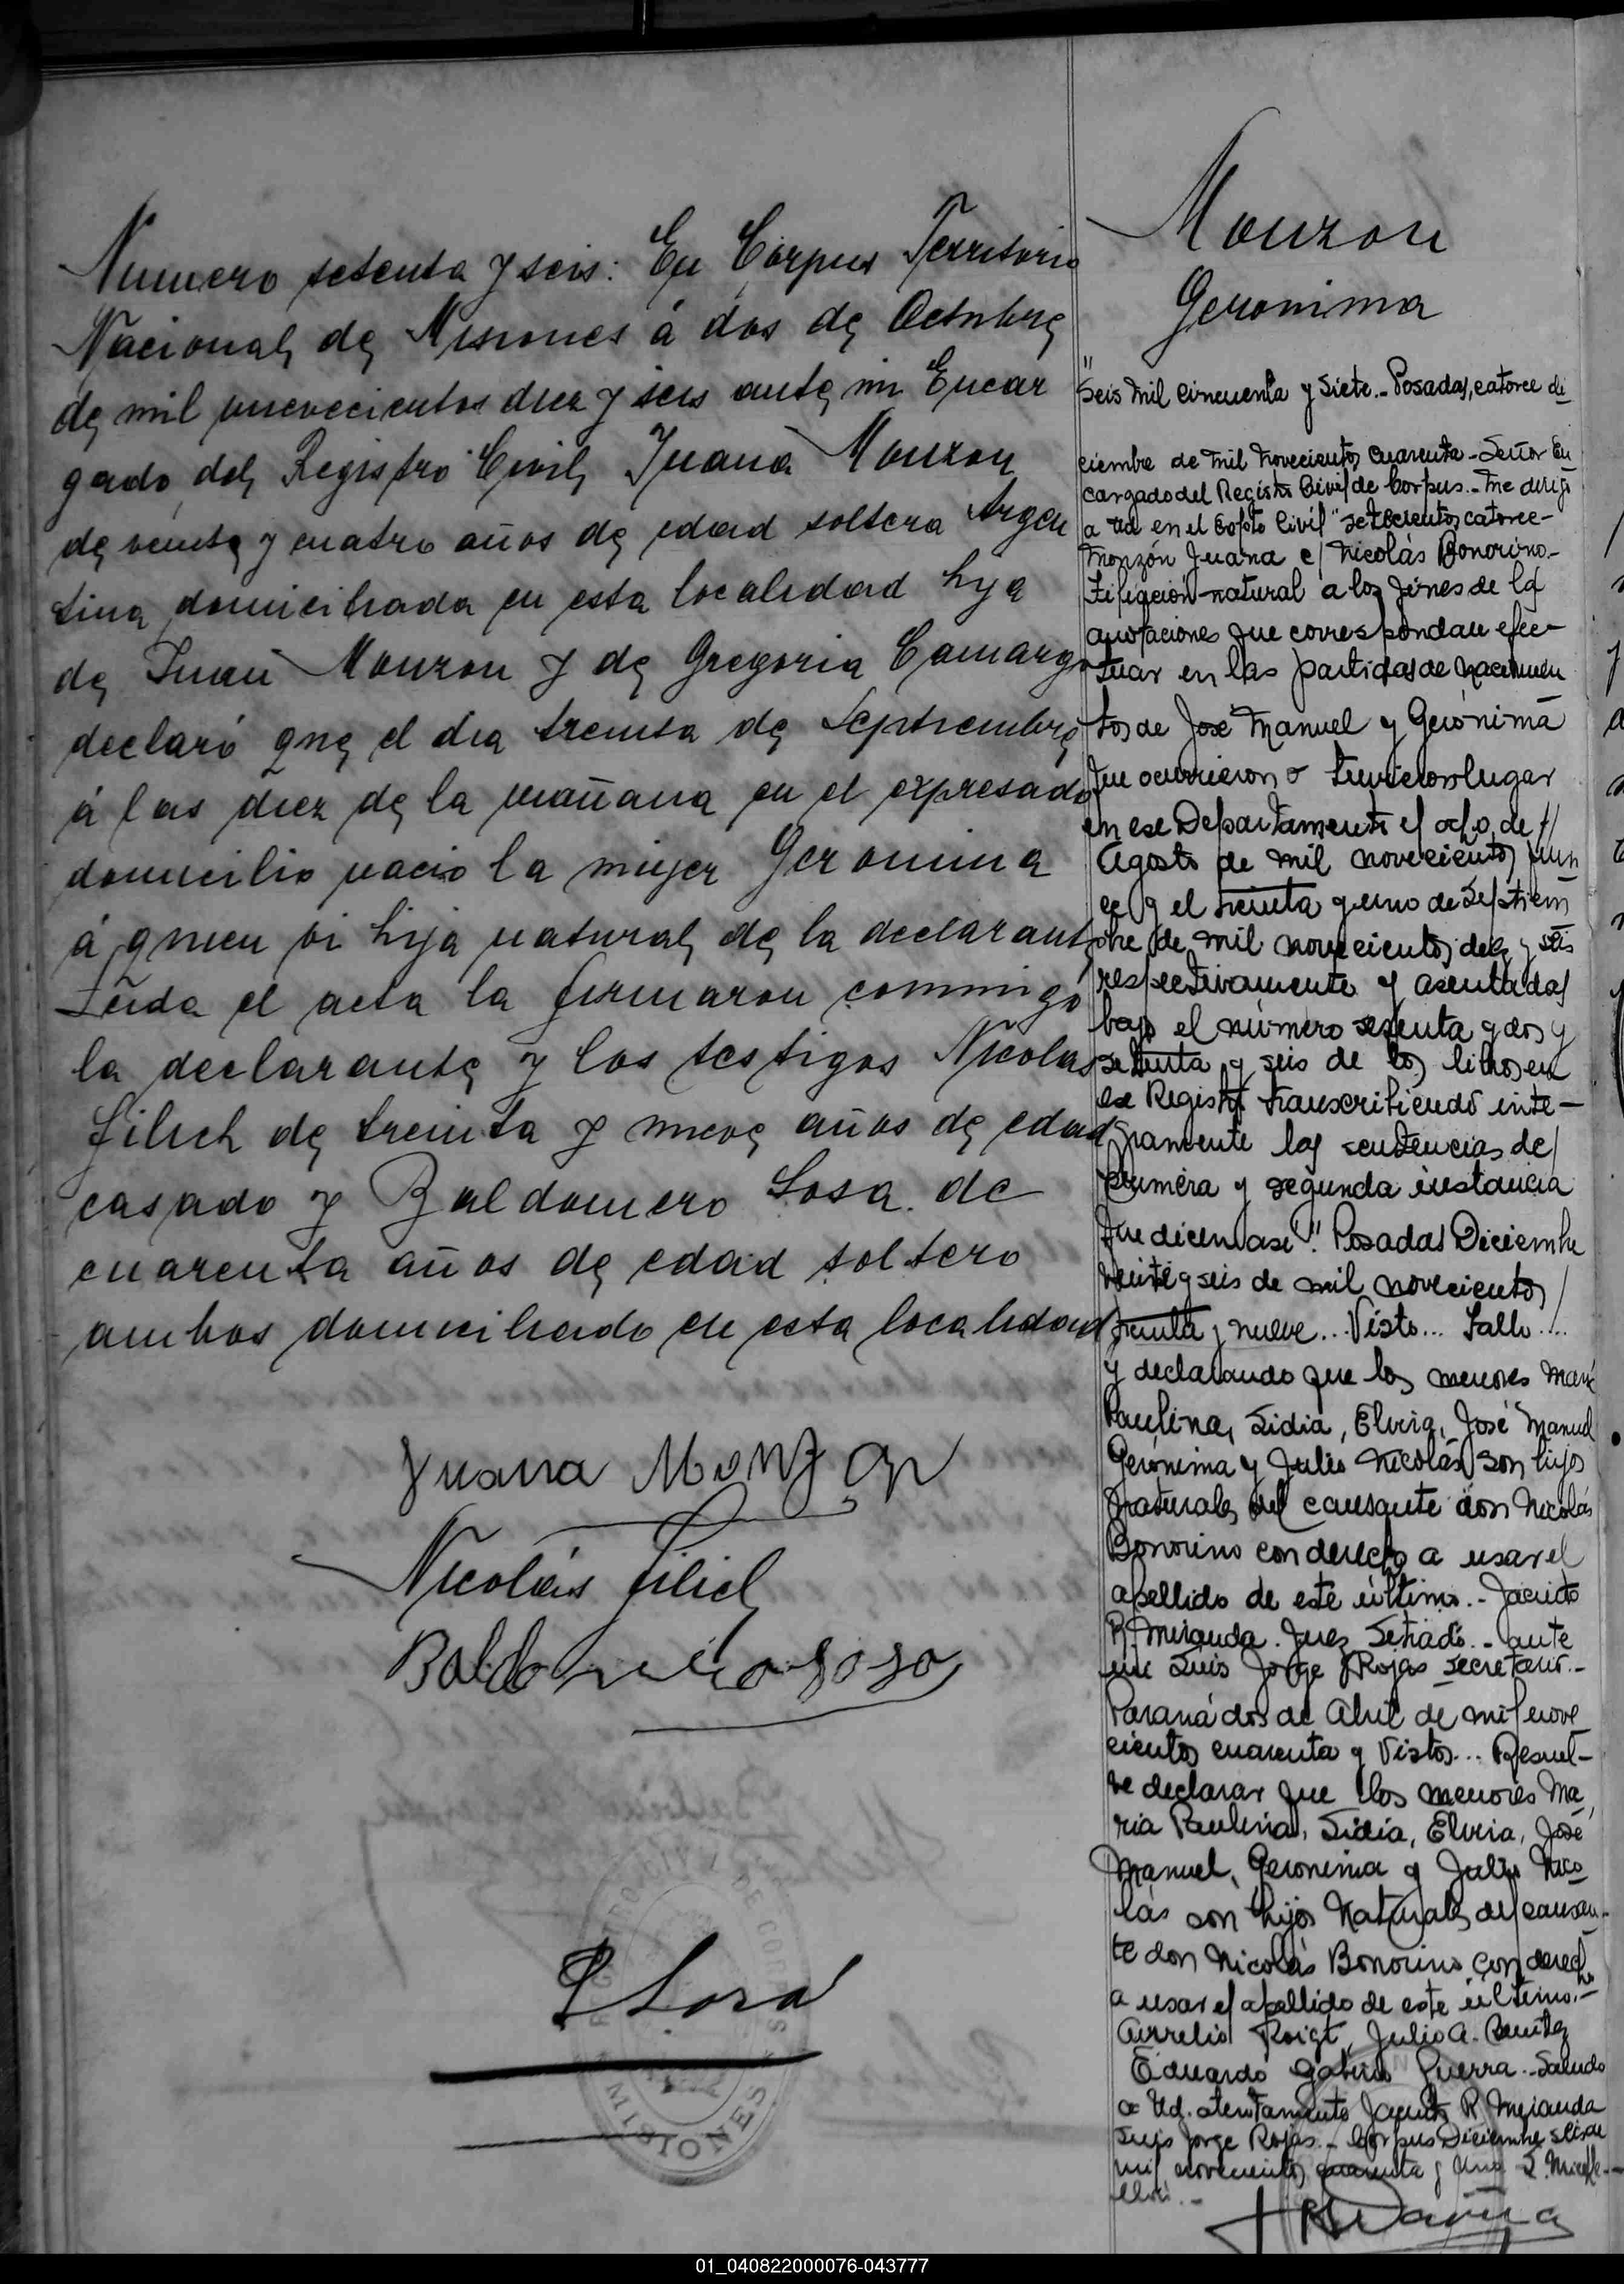 Numero setenta y seis: En Corpus Territorio
Nacional de Misiones á dos de Octubre
de mil novecientos diez y seis ante mi Encar
gado del Registro Civil, Juana Monzon
de veinte y cuatro años de edad soltera Argen
tina domiciliada en esta localidad hija
de Juan Monzon y de Gregoria Camargo
declaró que el dia treinta de Septiembre
á las diez de la mañana en el expresado
domicilio nacio la mujer Geronima
á quien vi hija natural de la declarante
Leida el acta la firmaron conmigo
la declarante y los testigos Nicolas
Filich de treinta y nueve años de edad
casado y Baldomero Sosa de
cuarenta años de edad soltero
ambos domiciliado en esta localidad
Juana Monzon
Nicolás Filich
Baldomero Sosa
Sosa
REGISTRO CIVIL DE CORPUS
MISIONES
Monzon
Geronima
"Seis mil cincuenta y siete.- Posadas, catorce di
ciembre de mil novecientos cuarenta - Señor En
cargado del Registro Civil de Corpus.- Me dirijo
a Ud en el Expte Civil setecientos catorce-
Monzón Juana c/ Nicolás Bonorino-
Filiación natural a los fines de las
anotaciones que correspondan efec-
tuar en las partidas de nacimien
tos de José Manuel y Gerónima
que ocurrieron o tuvieron lugar
en ese Departamento el ocho de
Agosto de mil novecientos quin
ce y el treinta y uno de Septiem
bre de mil novecientos diez y seis
respectivamente y asentadas
bajo el número sesenta y dos y
setenta y seis de los libros en
ese Registro transcribiendo inte-
gramente las sentencias de
primera y segunda instancia
que dicen así": Posadas Diciembre
veinte y seis de mil novecientos
treinta y nueve... Visto... Fallo...
y declarando que los menores María
Paulina, Lidia, Elvira, José Manuel
Gerónima y Julio Nicolás son hijos
naturales del causante don Nicolás
Bonorino con derecho a usar el
apellido de este último.- Jacinto
R. Miranda. Juez Letrado.- ante
mi Luis Jorge Rojas secretario.-
Paraná dos de Abril de mil nove
cientos cuarenta y Vistos... Resuel-
ve declarar que los menores Ma
ria Paulina, Lidia, Elvira, José
Manuel, Geronima y Julio Nico
lás son hijos naturales del causan-
te don Nicolás Bonorino con derecho
a usar el apellido de este último.-
Aurelio Roigt, Julio A. Benitez
Eduardo Guerra.- Saludo
a Ud. atentamente Jacinto R Miranda
Luis Jorge Rojas.- Corpus Diciembre seis de
mil novecientos cuarenta y uno
01_040822000076-043777